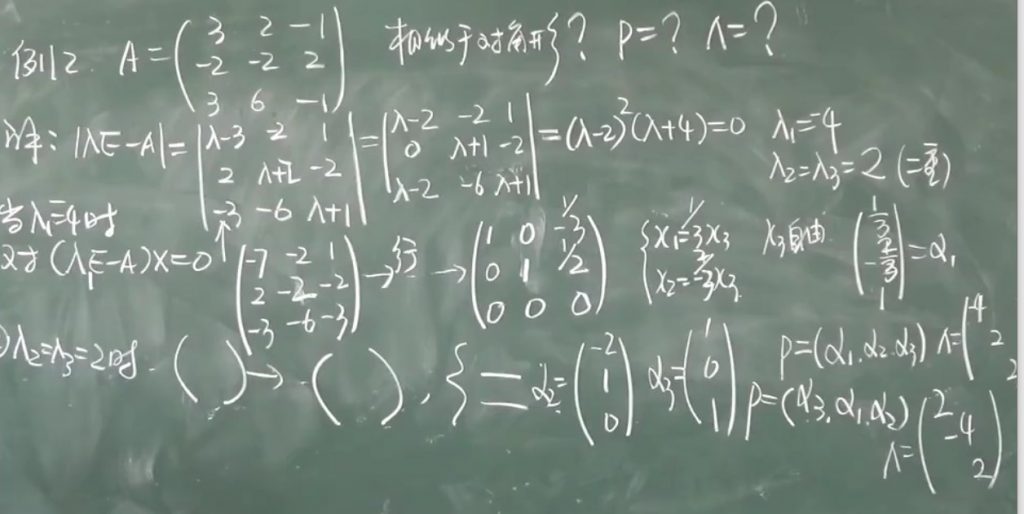 例12. A = ( 3 2 -1 ; -2 -2 2 ; 3 6 -1 ) 相似于对角阵? P=? Λ=?
解: |λE-A| = | λ-3 -2 1 ; 2 λ+2 -2 ; -3 -6 λ+1 | = | λ-2 -2 1 ; 0 λ+1 -2 ; λ-2 -6 λ+1 | = (λ-2)²(λ+4)=0 λ₁=-4
λ₂=λ₃=2 (二重)
当λ₁=-4时
对 (λ₁E-A)X=0 ( -7 -2 1 ; 2 -2 -2 ; -3 -6 -3 ) → 行 → ( 1 0 -1/3 ; 0 1 ; 0 0 0 ) { x₁=1/3x₃ x₂=-2/3x₃ x₃自由 ( 1/3 ; -2/3 ; 1 ) = α₁
λ₂=λ₃=2时. ( ) → ( ), { = α₂= ( -2 ; 1 ; 0 ) α₃= ( 1 ; 0 ; 1 ) P=(α₁.α₂.α₃) Λ= ( -4 ; 2 ; 2 )
P=(α₃,α₁,α₂)
Λ= ( 2 ; -4 ; 2 )